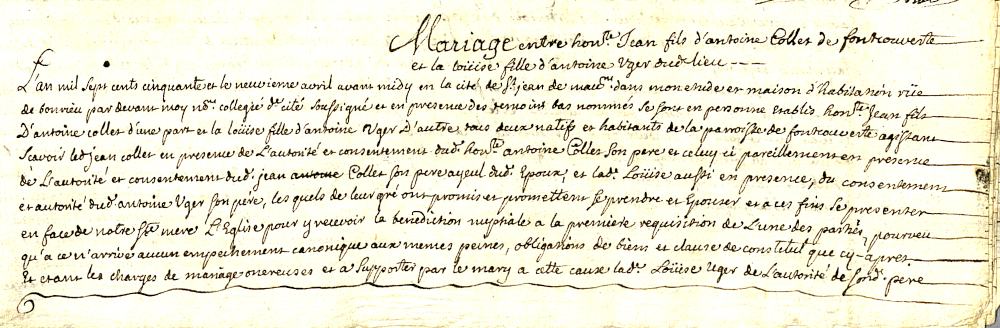 Mariage entre hon.ble Jean fils d'antoine Collet de fontcouverte
et la loüise fille d'antoine Uger dud. lieu ---
L'an mil sept cents cinquante et le neuvieme avril avant midy en la cité de St. jean de maur.ne dans mon etude et maison d'habita.on rüe
de bonrieu par devant moy no.re collegié d.te cité soussigné et en presence des temoins bas nommés se sont en personne etablis hon.ble Jean fils
D'antoine collet d'une part et la loüise fille d'antoine Uger D'autre tous deux natifs et habitants de la parroisse de fontcouverte agissant
Scavoir led. jean collet en presence de L'autorité et consentement dud. hon.ble antoine Collet Son pere et celuy cy pareillement en presence
de L'autorité et consentement dud. jean antoine Collet Son pere ayeul dud. Epoux, et lad. Loüise aussi en presence, du consentement
et autorité dud. antoine Uger Son père, les quels de leur gré ont promis et promettent Se prendre et Epouser et a ces fins Se presenter
en face de notre S.te mere L'Eglise pour y recevoir la benediction nuptiale a la premiere requisition de L'une des parties, pourveu
qu'a ce n'arrive aucun empechement canonique aux memes peines, obligations de biens et clause de constitut que cy-apres.
Et etant les charges de mariage onereuses et a Supporter par le mary a cette cause lad. Loüise Uger de L'autorité de Sond. pere